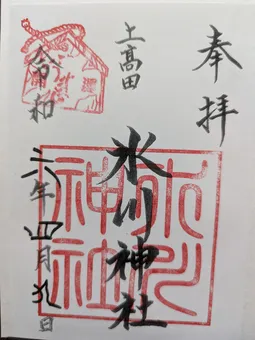 奉拝
上高田
氷川神社
氷川神社
令和六年四月九日